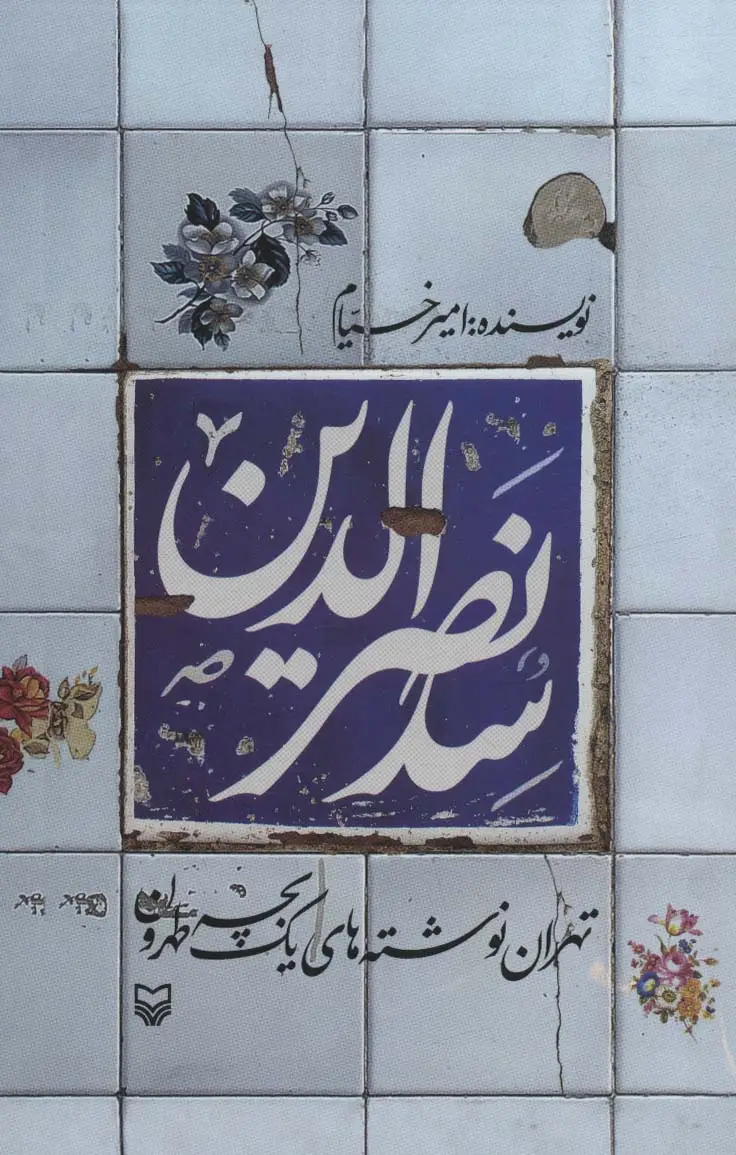 نویسنده: امیر خیّام
سد نصرالدین
تهران نوشته‌های یک بچه طهرون